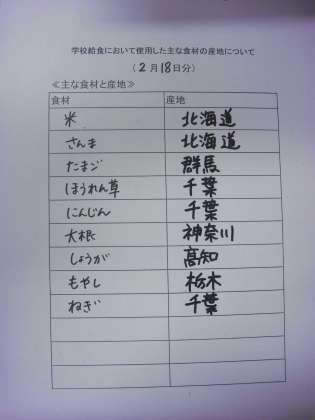 学校給食において使用した主な食材の産地について
(2月18日分)
≪主な食材と産地≫
食材 産地
米 北海道
さんま 北海道
たまご 群馬
ほうれん草 千葉
にんじん 千葉
大根 神奈川
しょうが 高知
もやし 栃木
ねぎ 千葉